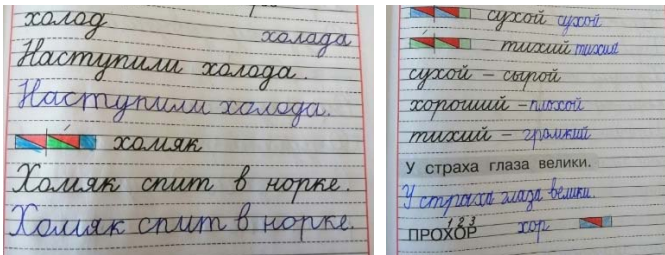 холод
холода
Наступили холода.
Наступили холода.
хомяк
Хомяк спит в норке.
Хомяк спит в норке.
сухой сухой
тихий тихий
сухой – сырой
хороший – плохой
тихий – громкий
У страха глаза велики.
У страха глаза велики.
1 2 3
ПРОХОР хор